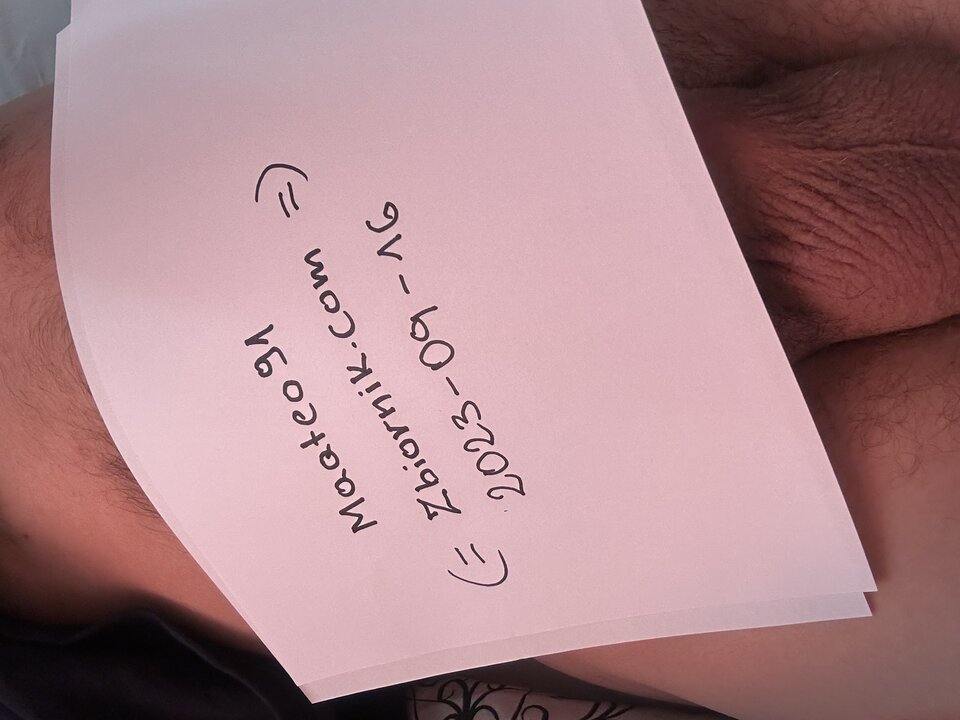 Maateo91
Zbiornik.com
2023-09-16
(=
(=